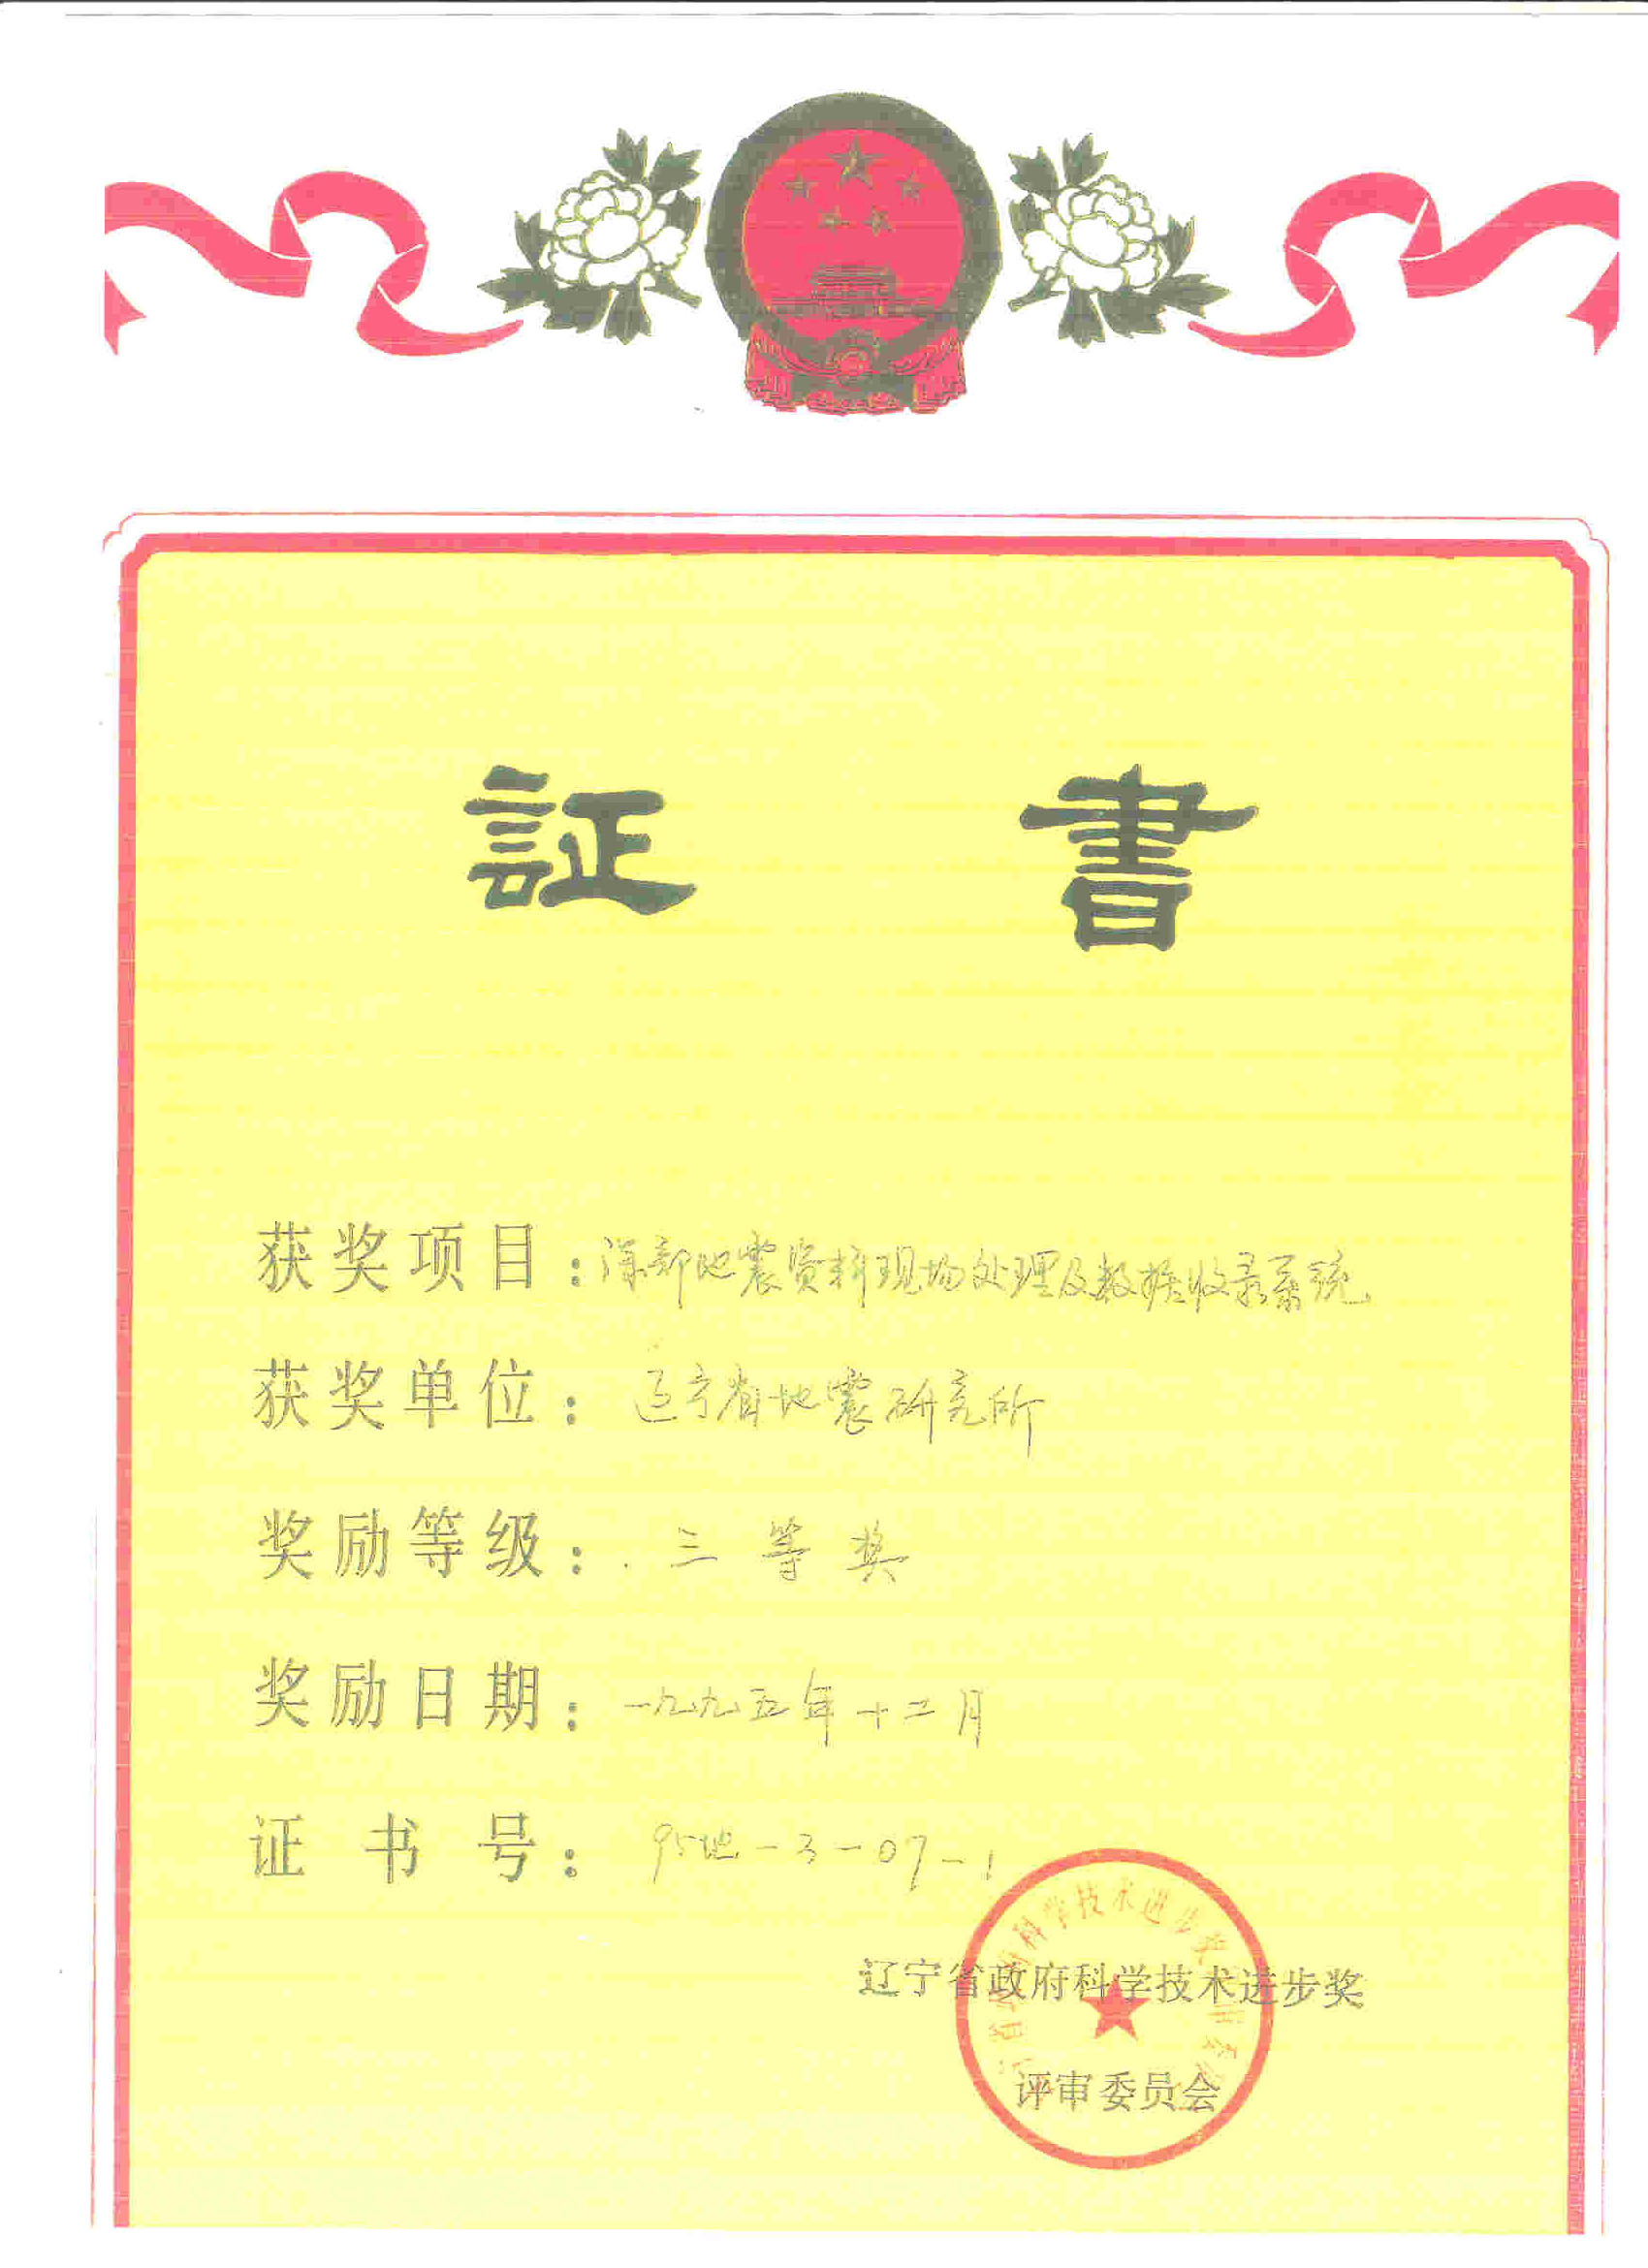 証書
获奖项目：深部地震资料现场处理及数据收录系统
获奖单位：辽宁省地震研究所
奖励等级：三等奖
奖励日期：一九九五年十二月
证书号：95地-3-07-1
科学技术进步奖
辽宁省政府科学技术进步奖
评审委员会